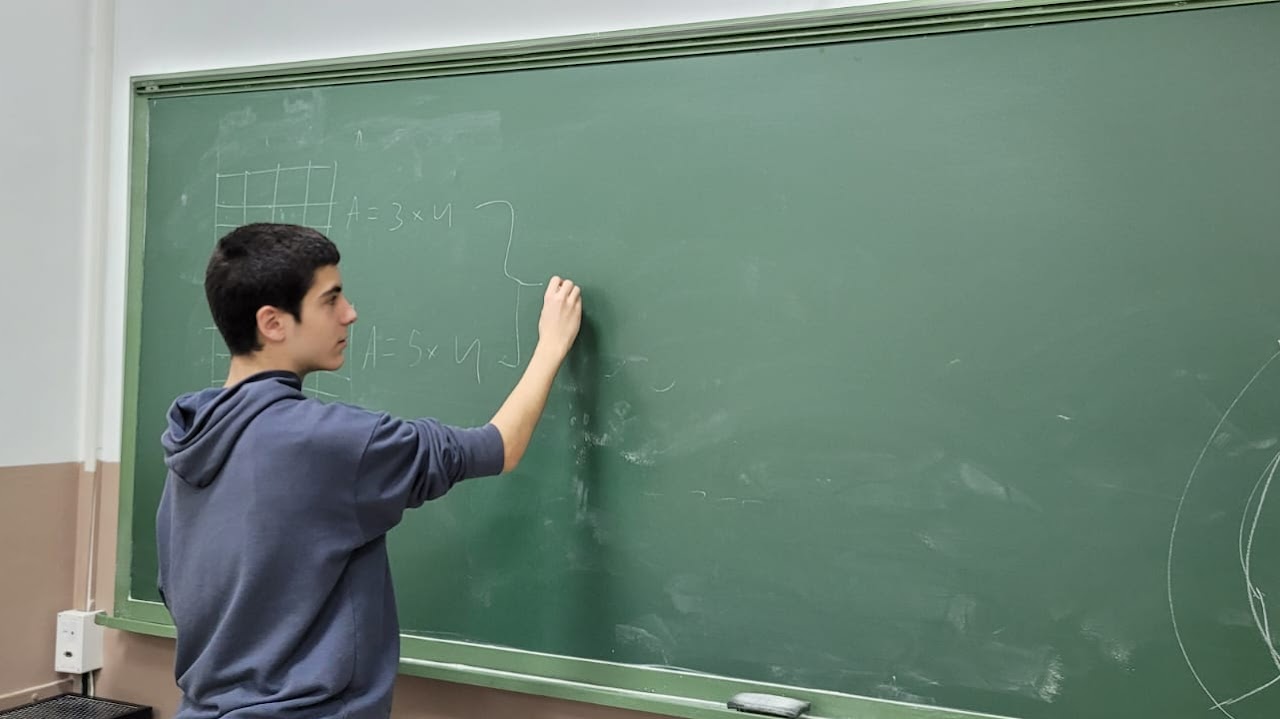 A = 3 × 4
A = 5 × 4